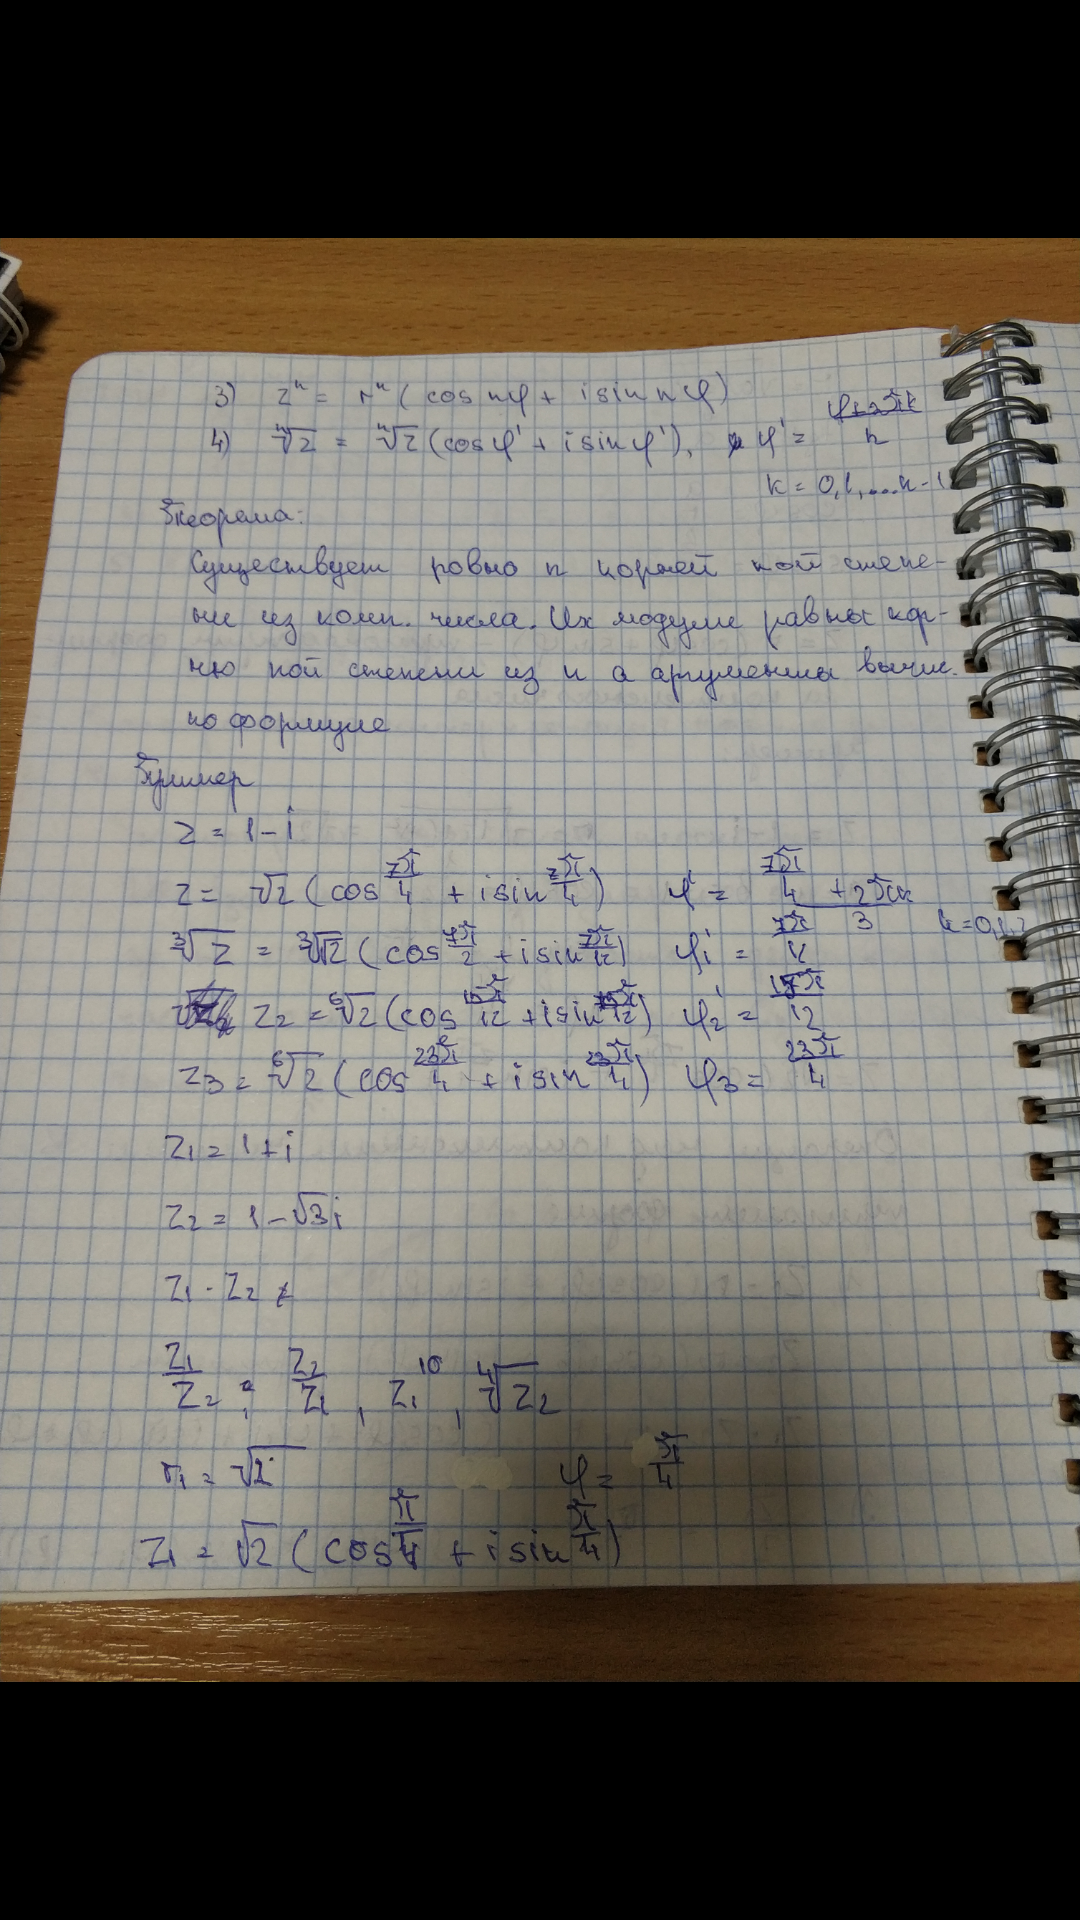 3) zⁿ = rⁿ( cos nφ + i sin nφ)
4) ⁿ√z = ⁿ√z (cos φ' + i sin φ'), φ' = (φ+2πk)/n
k = 0,1,...n-1
Теорема:
Существует ровно n корней ной степе-
ни из комп. числа. Их модули равны кор-
ню ной степени из н а аргументы вычис.
по формуле
Пример
z = 1 - i
z = √2 ( cos 7π/4 + i sin 7π/4 ) φ' = (7π/4 + 2πk)/3 k = 0,1,2
³√z = ³√√2 ( cos 7π/12 + i sin 7π/12 ) φ₁' = 7π/12
z₂ = ⁶√2 (cos 15π/12 + i sin 15π/12) φ₂' = 15π/12
z₃ = ⁶√2 ( cos 23π/4 + i sin 23π/4 ) φ₃ = 23π/4
z₁ = 1 + i
z₂ = 1 - √3 i
z₁ · z₂
z₁/z₂ ; z₂/z₁ , z₁¹⁰ , ⁴√z₂
r₁ = √2 φ = π/4
z₁ = √2 ( cos π/4 + i sin π/4 )